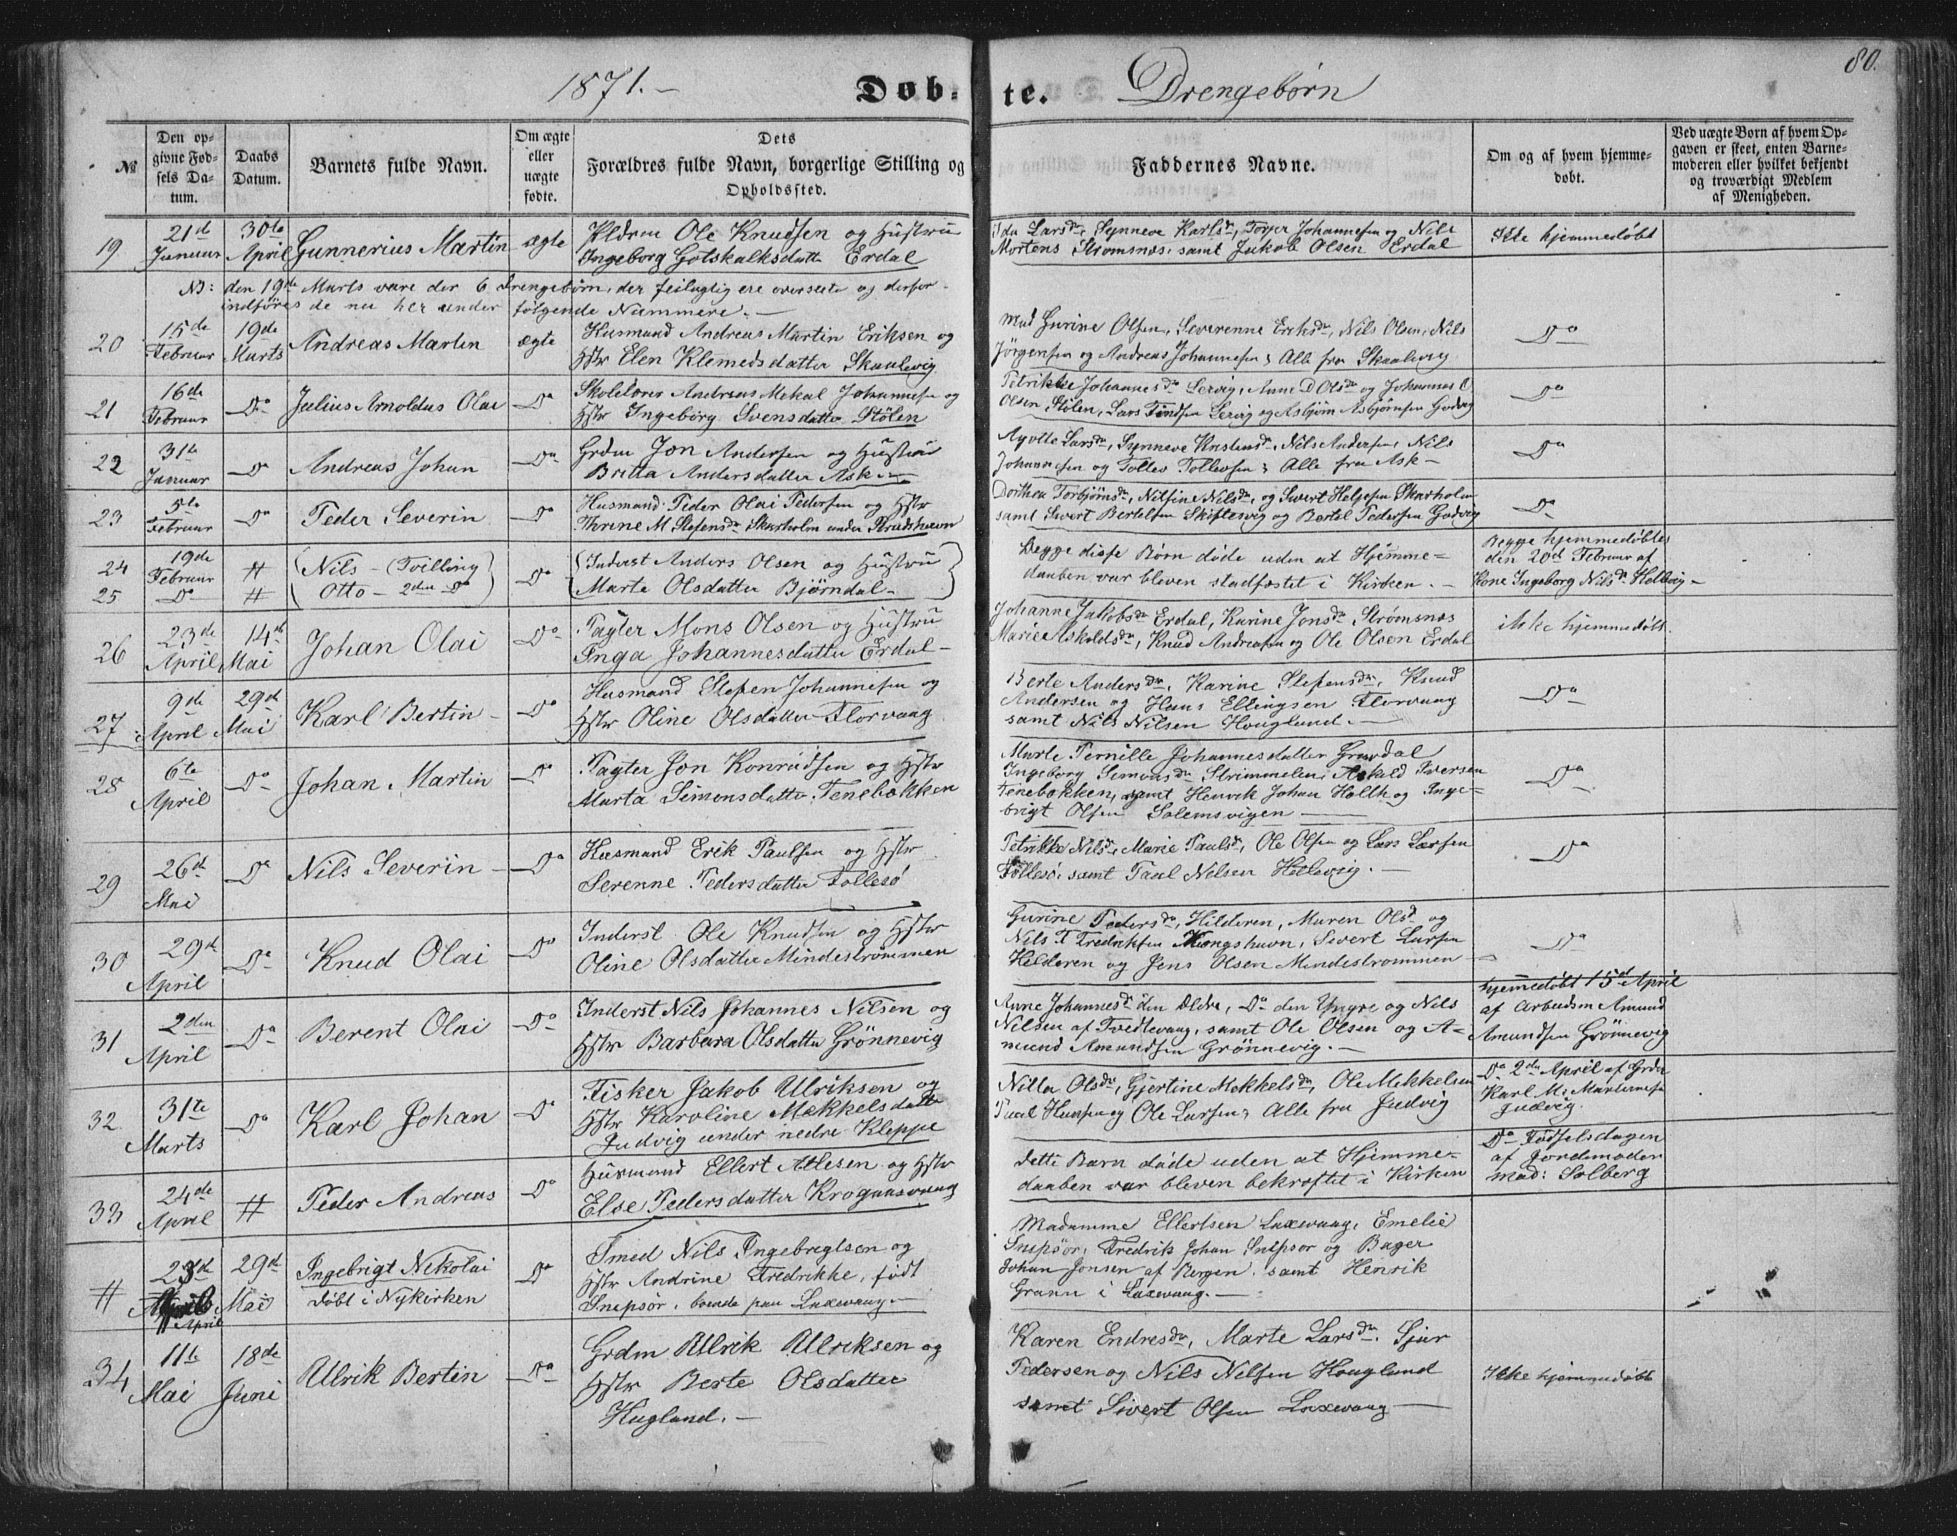 80.
1871.-
Döb- te. Drengebørn
№
Den op-
givne Fød-
sels Da-
tum.
Daabs
Datum.
Barnets fulde Navn.
Om ægte
eller
uægte
fødte.
Dets
Forældres fulde Navn, borgerlige Stilling og
Opholdssted.
Faddernes Navne.
Om og af hvem hjemme-
døbt.
Ved uægte Børn af hvem Op-
gaven er skeet, enten Barne-
moderen eller hvilket bekjendt
og troværdigt Medlem
af Menigheden.
19
21de
Januar
30te
April
Gunnerius Martin
ægte
Ole Knudsen og Hustru
Ingeborg Gotskalksdatter Erdal
Larsdr, Synneve Karlsdr, Johannesen og Nils
Mortens Strømsnæs, samt Jakob Olsen Erdal
Ikke hjemmedøbt
NB: den 19de Marts vare der 6 Drengebørn, der feilagtig ere overseete og derfor
indføres de nu her under følgende Nummere.-
20
15de
Februar
19de
Marts
Andreas Martin
ægte
Husmand Andreas Martin Eriksen og
Hstr Elen Klemedsdatter Skaalevig
Mad Gurine Olsen, Severenne Eriksdr, Nils Olsen, Nils
Jörgensen og Andreas Johannesen; Alle fra Skaalevig
Do
21
16de
Februar
Do
Julius Arnoldus Olai
Do
Skolelærer Andreas Mekal Johannesen og
Hstr Ingeborg Svensdatter Stölen
Petrikke Johannesdr Lervig, Anne D Olsdr og Johannes O
Olsen Stölen, Lars Lervig og Asbjørn Asbjørnsen Godvig
Do
22
31te
Januar
Do
Andreas Johan
Do
Grdm Jon Andersen og Hustru
Britta Andersdatter Ask.-
Larsdr, Synneve Knutsdr, Nils Andersen, Nils
Johannesen og Tollev Tollevsen; Alle fra Ask-
Do
23
5te
Februar
Do
Peder Severin
Do
Husmand Peder Olai Pedersen og Hstr
Thrine M Stefensdr Skarholm under Strudshavn
Dorthea Torbjørnsdr, Nilsine Nilsdr, og Sivert Helgesen Skarholm
samt Sivert Bertelsen Skiftesvig og Bertel Pedersen Godvig
Do
24
19de
Februar
#
Nils - (Tvilling
25
Do
#
Otto - 2den Do
Do
Inderst Anders Olsen og Hustru
Marta Olsdatter Björndal-
Begge disse Børn døde uden at Hjemme-
daaben var bleven stadfæstet i Kirken.-
Begge hjemmedøbte
den 20de Februar af
Kone Ingeborg Nilsdr Hellevig-
26
23de
April
14de
Mai
Johan Olai
Do
Pagter Mons Olsen og Hustru
Inga Johannesdatter Erdal-
Johanne Jakobsdr Erdal, Karine Jonsdr Strømsnæs
Marie Askeldsdr, Knud Andreasen og Ole Olsen Erdal
ikke hjemmedøbt
27
9de
April
29de
Mai
Karl Bertin-
Do
Husmand Stefen Johannesen og
Hstr Oline Olsdatter Florvaag
Berte Andersdr, Karine Stefensdr, Knud
Andersen og Hans Ellingsen Florvaag
samt Nils Nilsen Hougland.-
Do
28
6te
April
Do
Johan Martin
Do
Pagter Jon Konradsen og Hstr
Marta Simonsdatter Tenebækken
Marte Pernille Johannesdatter Gravdal
Ingeborg Simonsdr Strimmelen, Askeld Iversen
Tenebækken, samt Henrik Johan Holth og Inge-
brigt Olsen Solemsvigen-
Do
29
26de
Mai
Do
Nils Severin-
Do
Husmand Erik Paulsen og Hstr
Serenne Pedersdatter Follesö
Petrikke Nilsdr, Marie Paulsdr, Ole Olsen og Lars Larsen
Follesö, samt Paul Nilsen Hellevig.-
Do
30
29de
April
Do
Knud Olai
Do
Inderst Ole Knudsen og Hstr
Oline Olsdatter Mindestrømmen
Gurine Pedersdr, Hilderen, Maren Olsdr og
Nils T Fredriksen Kongshavn, Sivert Larsen
Helderen og Jens Olsen Mindestrommen-
Do
31
2den
April
Do
Berent Olai
Do
Inderst Nils Johannes Nilsen og
Hstr Barbara Olsdatter Grönnevig
Anne Johannesdr den Ældre, Do den Yngre og Nils
Nilsen af Tvedtevaag, samt Ole Olsen og A-
mund Amundsen Grönnevig.-
hjemmedøbt 15de April
af Arbeidsm Amund
Amundsen Grönnevig
32
31te
Marts
Do
Karl Johan
Do
Fisker Jakob Ulriksen og
Hstr Karoline Mekkelsdatter
Judvig under nedre Kleppe
Nilla Olsdr, Gjertine Mekkelsdr, Ole Mekkelsen
Paul Hansen og Ole Larsen; Alle fra Judvig
Do 2den April af Grdm
Karl M. Martinesen
Judvig.
33
24de
April
#
Peder Andreas
Do
Husmand Ellert Atlesen og Hstr
Else Pedersdatter Krogaasvaag
Dette Barn døde uden at Hjemme-
daaben var bleven bekræftet i Kirken
Do Fødselsdagen
af Jordemoder
mad: Solberg
#
23de
April
29de
Mai
Ingebrigt Nekolai
døbt i Nykirken
Do
Smed Nils Ingebregtsen og
Hstr Andrine Fredrikke, født
Snepsör, boende paa Laxevaag-
Madamme Ellertsen Laxevaag, Emelie
Snepsör, Fredrik Johan Snepsor og Bager
Johan Jonsen af Bergen, samt Henrik
Grann i Laxevaag.-
34
11te
Mai
18de
Juni
Ulrik Bertin
Do
Grdm Ulrik Ulriksen og
Hstr Berte Olsdatter
Hugland.-
Karen Endresdr, Marte Larsdr, Sjur
Pedersen og Nils Nilsen Hougland
samt Sivert Olsen Laxevaag-
Ikke hjemmedøbt